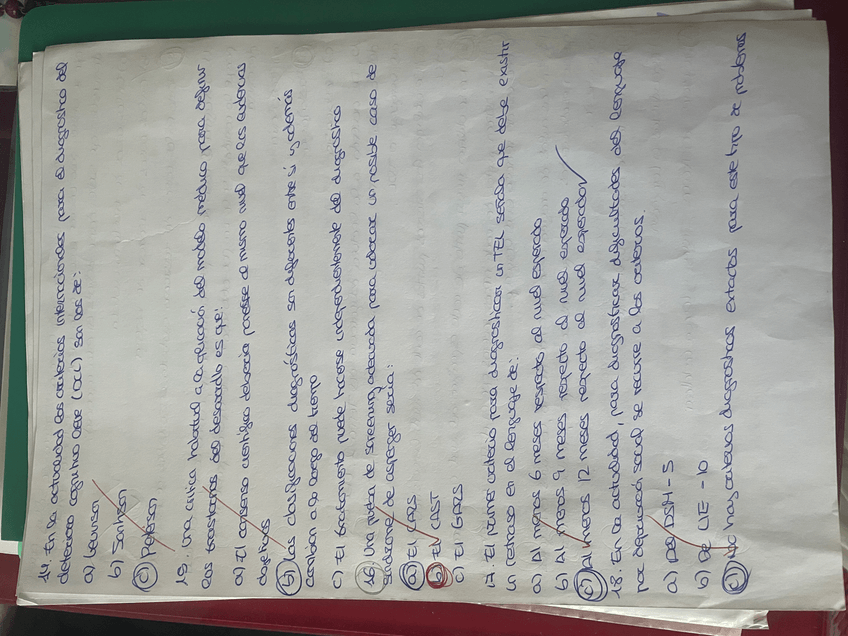 14. En la actualidad los criterios internacionales para el diagnóstico del
deterioro cognitivo leve (DCL) son los de:
a) Levinson
b) Santison
c) Petersen
15. Una crítica habitual a la aplicación del modelo médico para definir
los trastornos del desarrollo es que:
a) El consenso científico debería ponerse al mismo nivel que las evidencias
objetivas
b) Las clasificaciones diagnósticas son diferentes entre sí y además
cambian a lo largo del tiempo
c) El tratamiento puede hacerse independientemente del diagnóstico
16. Una prueba de screening adecuada para detectar un posible caso de
síndrome de asperger sería:
a) El CARS
b) El CAST
c) El GARS
17. El primer criterio para diagnosticar un TEL señala que debe existir
un retraso en el lenguaje de:
a) Al menos 6 meses respecto al nivel esperado
b) Al menos 9 meses respecto al nivel esperado
c) Al menos 12 meses respecto al nivel esperado
18. En la actualidad, para diagnosticar dificultades del lenguaje
por deprivación social se recurre a los criterios.
a) Del DSM-5
b) De CIE-10
c) No hay criterios diagnósticos exactos para este tipo de problemas